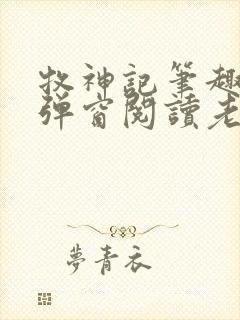 牧神記筆趣
弹窗閱讀老
夢青衣